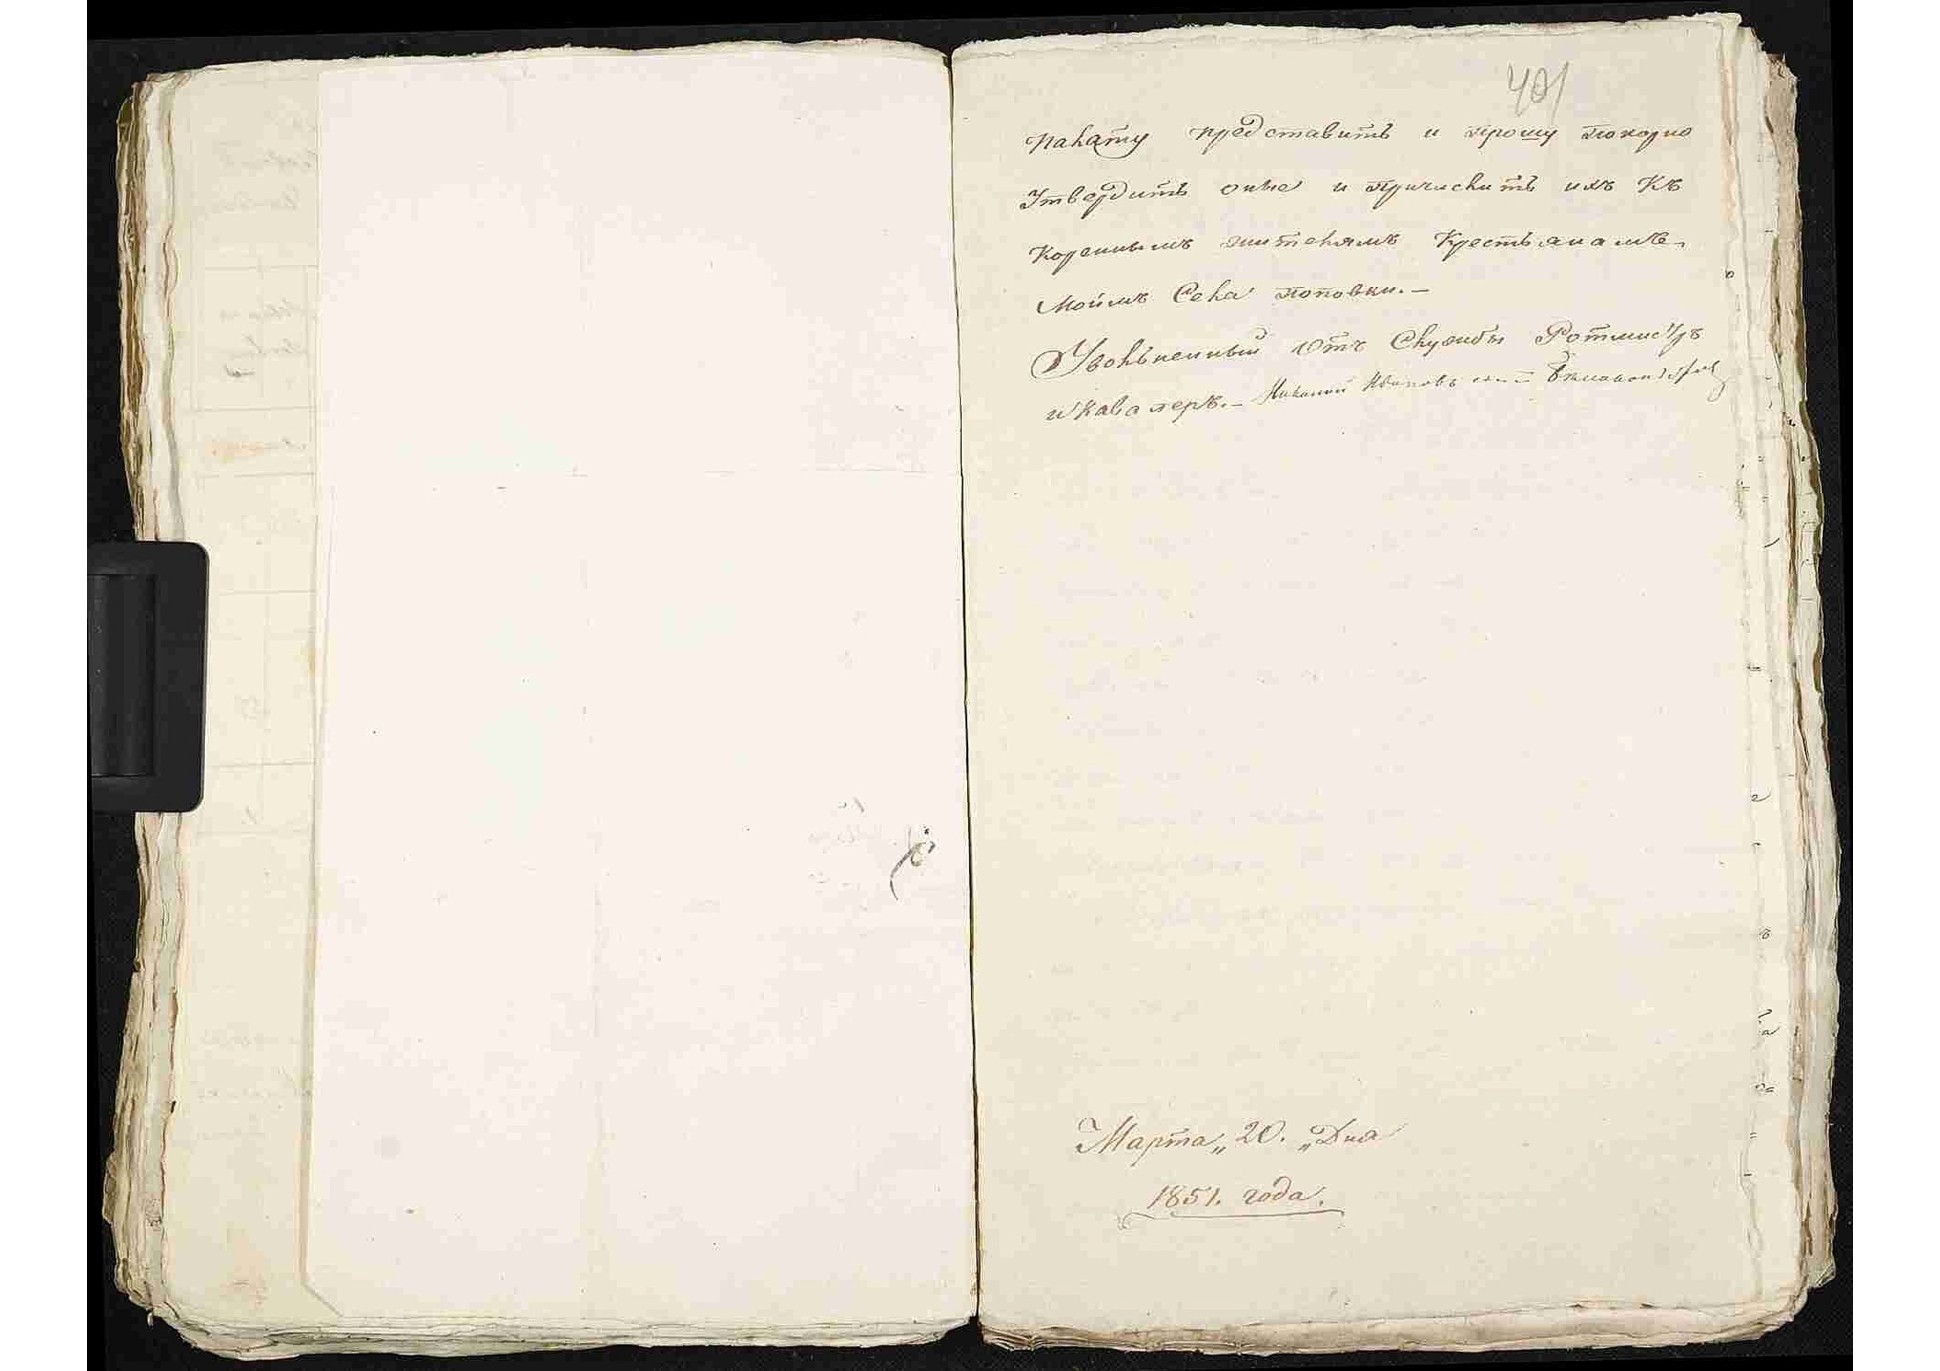 401
палату представить и прошу покорно
Утвердить оные и причислить ихъ Къ
Кореннымъ жителямъ Крестьянамъ
Моимъ Села поповки. —
Уволъненный отъ Службы Ротмистръ
и Кавалеръ. — Николай Ивановъ сынъ
Марта „ 20. „ Дня
1851. года.